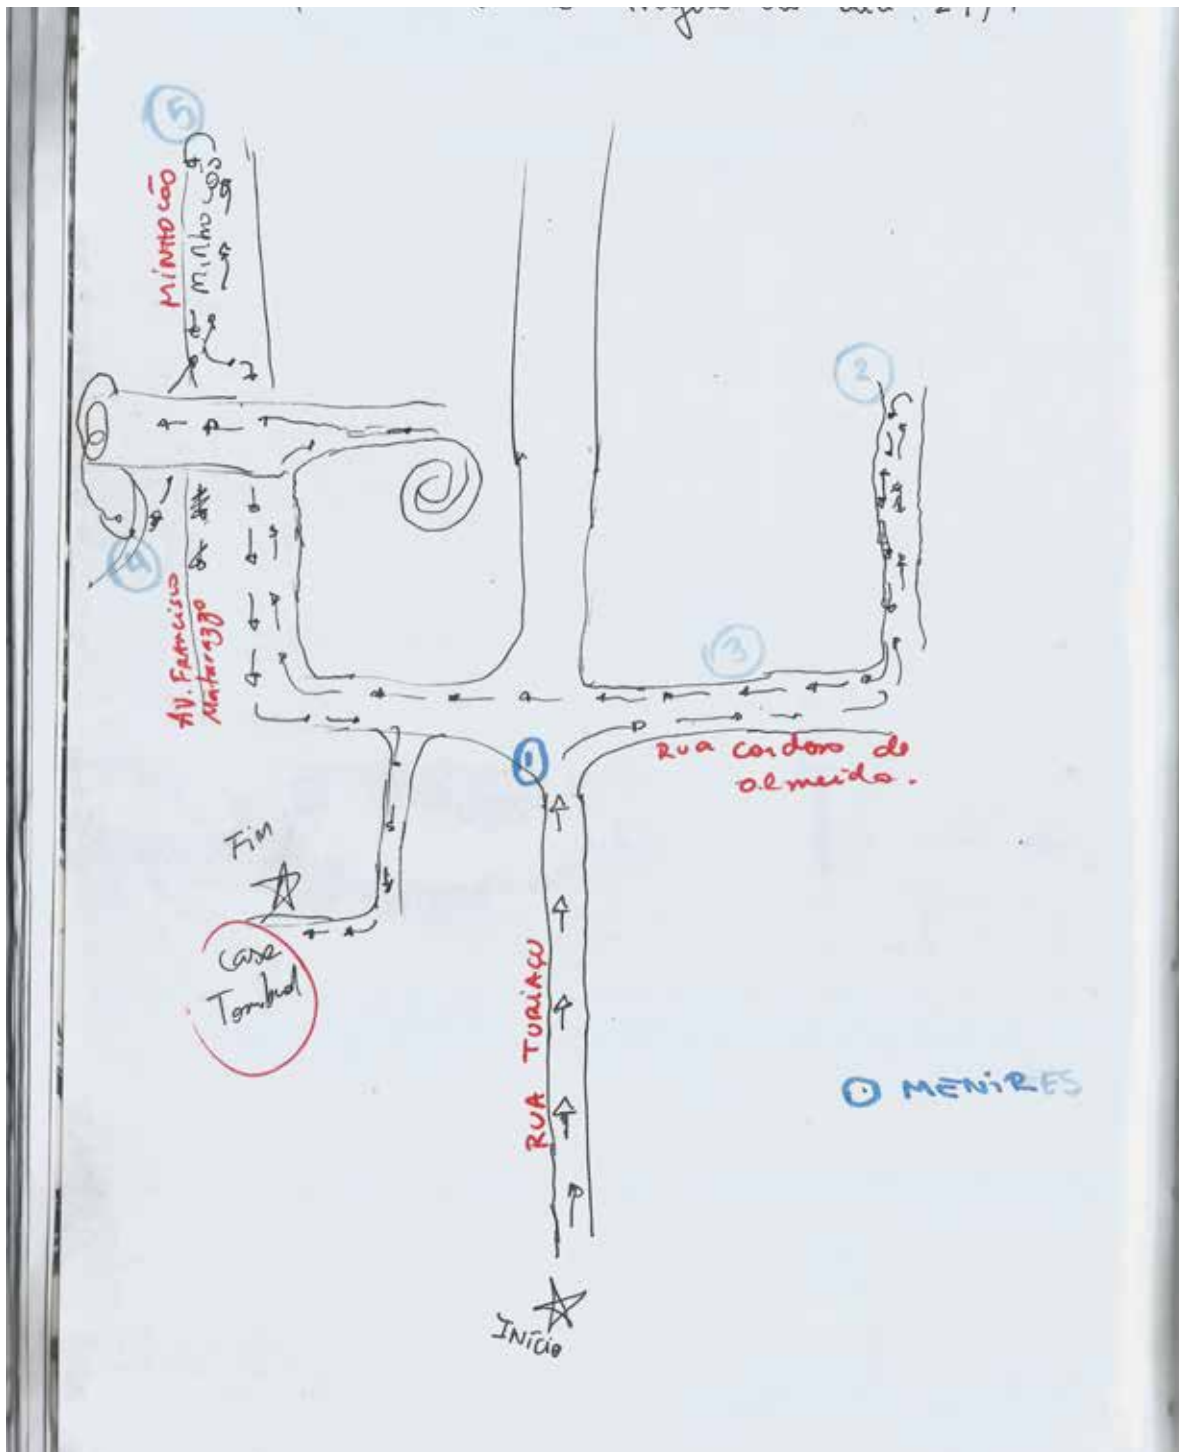 5
MINHOCÃO
Minhocão
2
4
3
AV. FRANCISCO
Matarazzo
1
Rua Cardoso de
almeida.
Fim
Casa
RUA TURIAÇU
MENIRES
INÍCIO